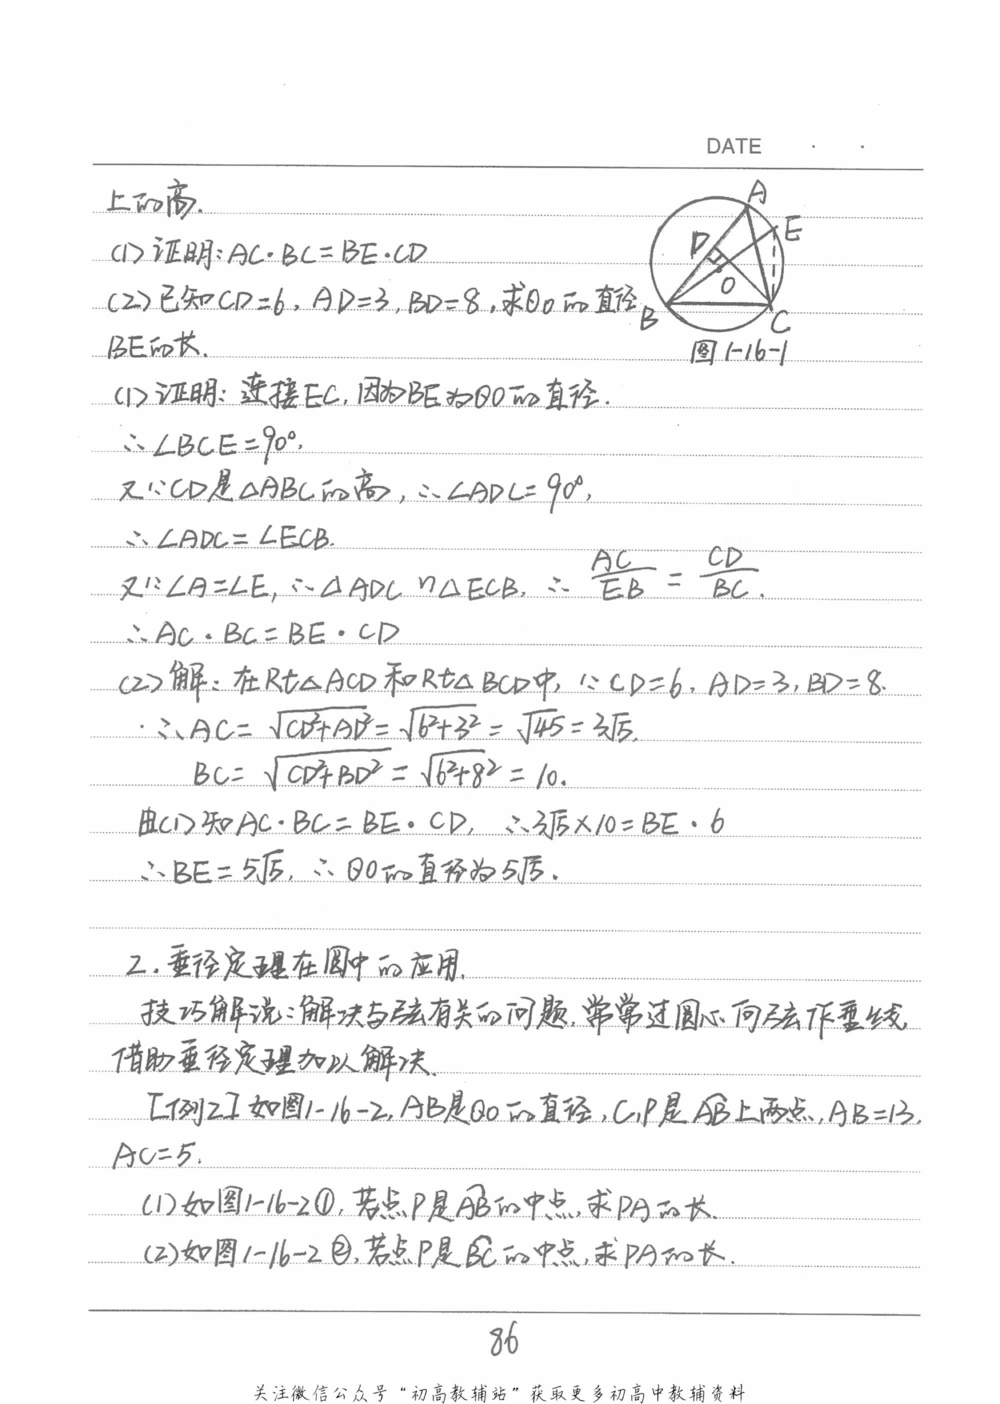 DATE · ·
上的高.
(1)证明:AC·BC=BE·CD
(2)已知CD=6,AD=3,BD=8,求⊙O的直径
BE的长.
A
E
D
O
B
C
图1-16-1
(1)证明:连接EC,因为BE为⊙O的直径.
∴∠BCE=90°,
又∵CD是△ABC的高,∴∠ADC=90°,
∴∠ADC=∠ECB.
又∵∠A=∠E,∴△ADC∽△ECB,∴AC/EB=CD/BC.
∴AC·BC=BE·CD
(2)解:在Rt△ACD和Rt△BCD中,∵CD=6,AD=3,BD=8.
∴AC=√(CD²+AD²)=√(6²+3²)=√45=3√5,
BC=√(CD²+BD²)=√(6²+8²)=10.
由(1)知AC·BC=BE·CD,∴3√5×10=BE·6
∴BE=5√5,∴⊙O的直径为5√5.
2.垂径定理在圆中的应用.
技巧解说:解决与弦有关的问题,常常过圆心向弦作垂线,
借助垂径定理加以解决.
[例2]如图1-16-2,AB是⊙O的直径,C,P是A͡B上两点,AB=13,
AC=5.
(1)如图1-16-2①,若点P是A͡B的中点,求PA的长.
(2)如图1-16-2②,若点P是B͡C的中点,求PA的长.
86
关注微信公众号“初高教辅站”获取更多初高中教辅资料